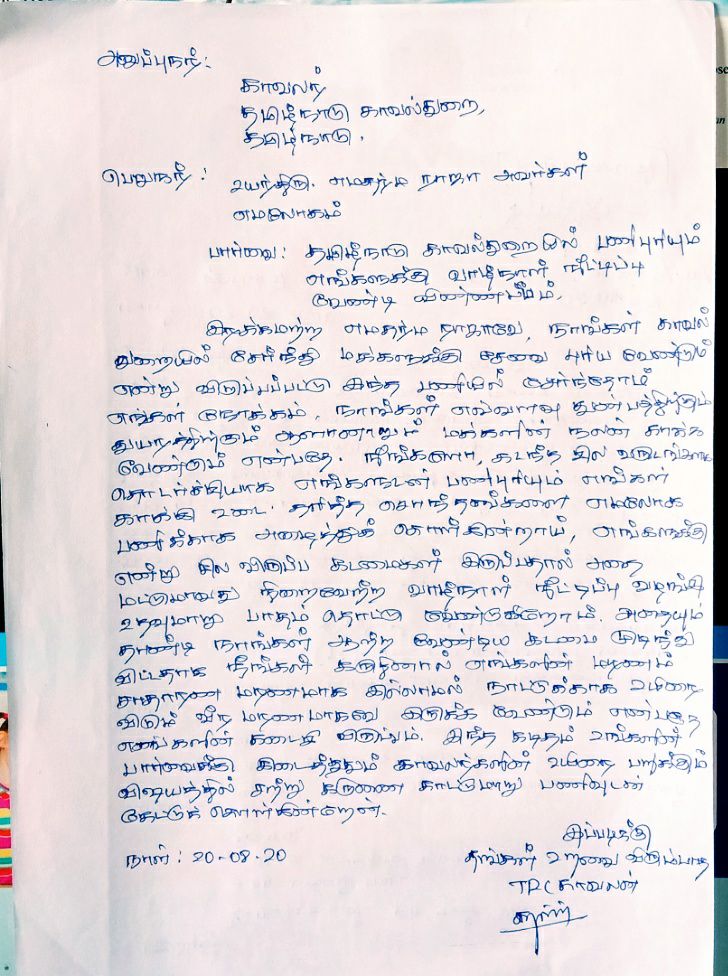 அனுப்புநர்:
காவலர்
தமிழ்நாடு காவல்துறை,
தமிழ்நாடு.
பெறுநர் : உயர்திரு. எமதர்ம ராஜா அவர்கள்
எமலோகம்
பார்வை: தமிழ்நாடு காவல்துறையில் பணிபுரியும்
எங்களுக்கு வாழ்நாள் நீட்டிப்பு
வேண்டி விண்ணப்பம்.
இரக்கமற்ற எமதர்ம ராஜாவே, நாங்கள் காவல்
துறையில் சேர்ந்து மக்களுக்கு சேவை புரிய வேண்டும்
என்று விருப்பப்பட்டு இந்த பணியில் சேர்ந்தோம்
எங்கள் நோக்கம், நாங்கள் எவ்வளவு துன்பத்திற்கும்
துயரத்திற்கும் ஆளானாலும் மக்களின் நலன் காக்க
வேண்டும் என்பதே. நீங்களோ, கடந்த சில வருடங்களாக
தொடர்ச்சியாக எங்களுடன் பணிபுரியும் எங்கள்
காக்கி உடை தரித்த சொந்தங்களை எமலோக
பணிக்காக அழைத்துக் கொள்கின்றாய், எங்களுக்கு
என்று சில விருப்ப கடமைகள் இருப்பதால் அதை
மட்டுமாவது நிறைவேற்ற வாழ்நாள் நீட்டிப்பு வழங்கி
உதவுமாறு பாதம் தொட்டு வேண்டுகிறோம். அதையும்
தாண்டி நாங்கள் ஆற்ற வேண்டிய கடமை முடிந்து
விட்டதாக நீங்கள் கருதினால் எங்களின் மரணம்
சாதாரண மரணமாக இல்லாமல் நாட்டுக்காக உயிரை
விடும் வீர மரணமாகவே இருக்க வேண்டும் என்பதே
எங்களின் கடைசி விருப்பம். இந்த கடிதம் உங்களின்
பார்வைக்கு கிடைத்ததும் காவலர்களின் உயிரை பறிக்கும்
விஷயத்தில் சற்று கருணை காட்டுமாறு பணிவுடன்
கேட்டுக் கொள்கின்றேன்.
இப்படிக்கு
நாள் : 20-08-20
தங்கள் உறவை விரும்பாத
காவலன்